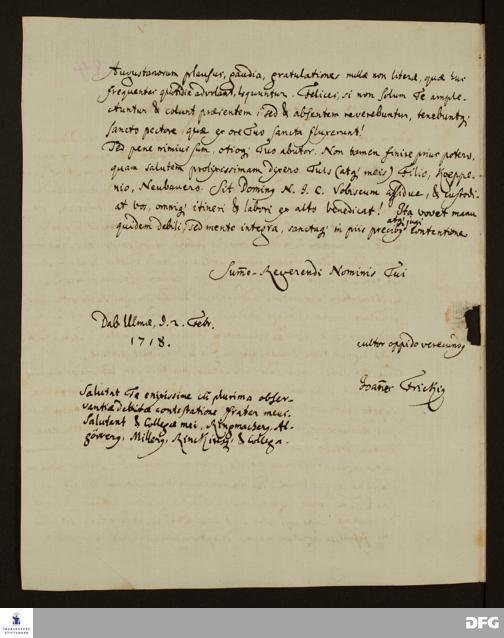 Augustanorum plausus, gaudia, gratulationes nullæ non literæ, quæ huc
frequenter quotidie advolant, loquuntur. Felices, si non solum Te ample-
ctuntur & colunt præsentem, sed & absentem reverebuntur, tenebuntq;
sancto pectore, quæ ex ore Tuo sancta fluxerunt!
Sed pene nimius sum, otioq; Tuo abutor. Non tamen finire prius potero,
quam salutem prolixissimam dixero Tuis (atq; meis) Filio, Hoeppe-
nio, Neubauero. Sit Dominus N. I. C. Vobiscum assidue, & custodi-
at vos, omniq; itineri & labori ex alto benedicat! Ita vovet manu
quidem debili, sed mente integra, sanctaq; in piis precibus atq; jugi contentione
Summe-Reverendi Nominis Tui
Dab. Ulmæ, d. 2. Febr.
1718.
cultor oppido verecundus
Joannes Frickius
Salutat Te enixissime cũ plurima obser-
vantiæ debitæ contestatione, frater meus.
Salutant & Collegæ mei, Ringmacherus, Al-
göwerus, Millerus, & Collega.
FRANCKESCHE
STIFTUNGEN
DFG